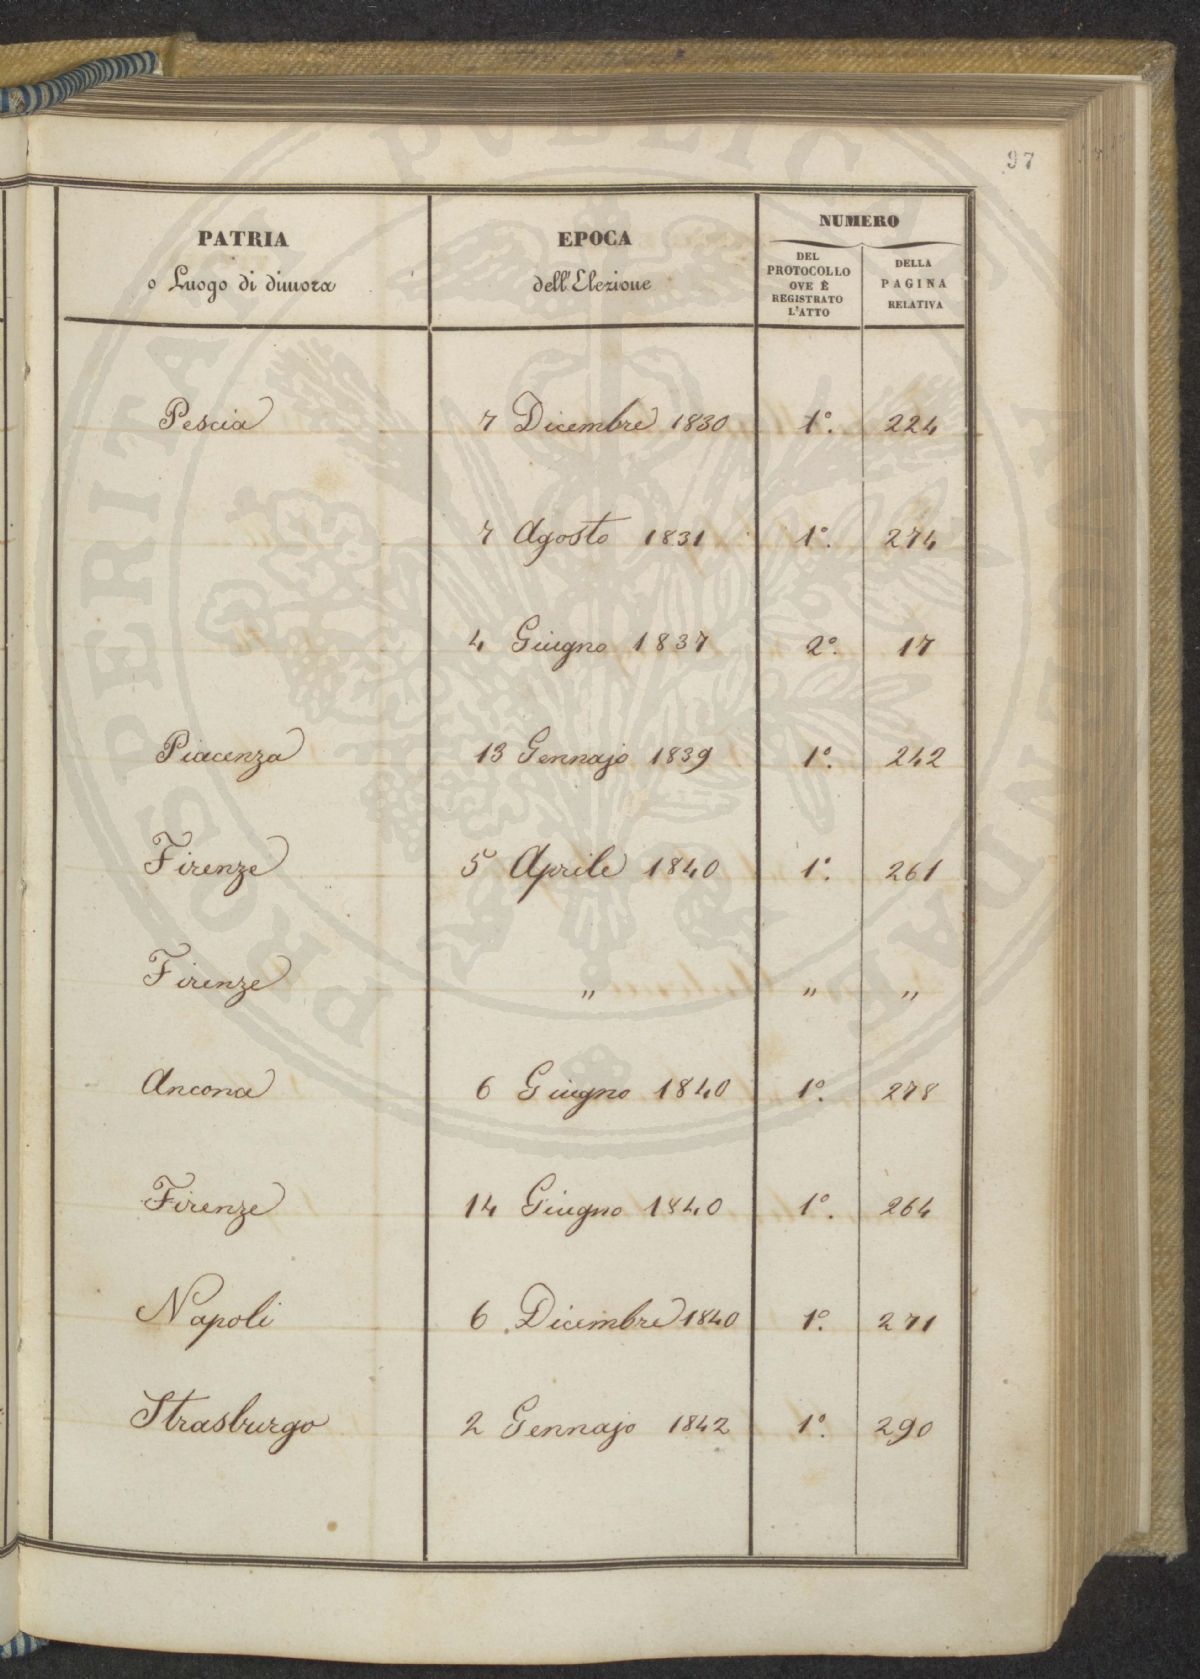 97
PATRIA
o Luogo di dimora
EPOCA
dell'Elezione
NUMERO
DEL
PROTOCOLLO
OVE È
REGISTRATO
L'ATTO
DELLA
PAGINA
RELATIVA
Pescia 7 Dicembre 1830 1º. 224
7 Agosto 1831 1º. 274
4 Giugno 1837 2º. 17
Piacenza 13 Gennajo 1839 1º. 242
Firenze 5 Aprile 1840 1º. 261
Firenze " " "
Ancona 6 Giugno 1840 1º. 278
Firenze 14 Giugno 1840 1º. 264
Napoli 6 Dicembre 1840 1º. 271
Strasburgo 2 Gennajo 1842 1º. 290